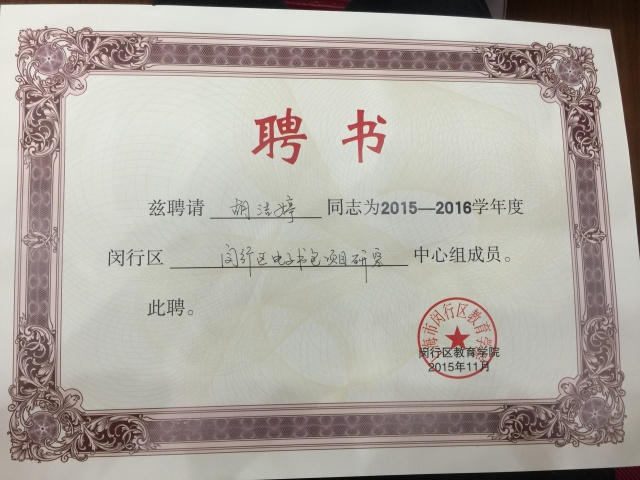 聘书
兹聘请 胡洁婷 同志为2015—2016学年度
闵行区 闵行区电子书包项目研究 中心组成员。
此聘。
上海市闵行区教育学院
闵行区教育学院
2015年11月